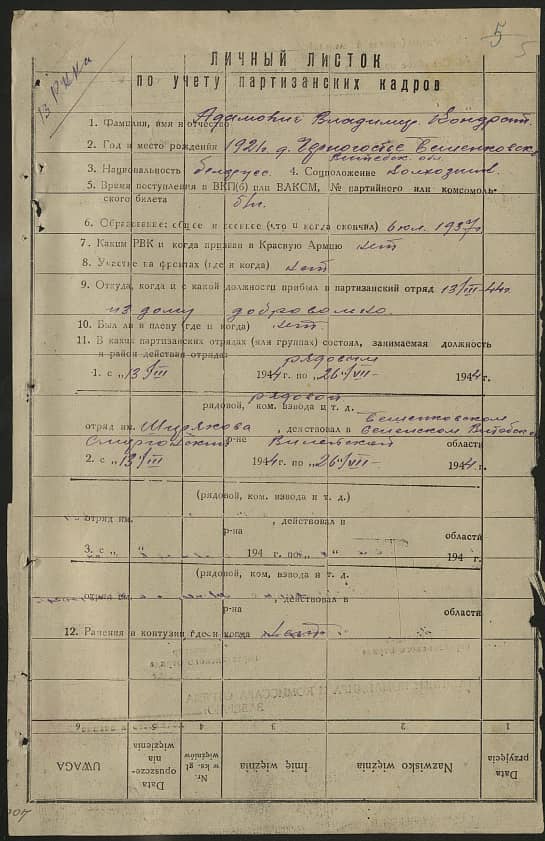 5
13 РККа
ЛИЧНЫЙ ЛИСТОК
по учету партизанских кадров
1. Фамилия, имя и отчество Адамович Владимир Кондрат.
2. Год и место рождения 1921 г. д. Бешенковск
Витебск. обл.
3. Национальность белорус 4. Соцположение колхозник
5. Время поступления в ВКП(б) или ВЛКСМ, № партийного или комсомоль-
ского билета б/п.
6. Образование: общее и военное (что и когда окончил) 6 кл. 1937г
7. Каким РВК и когда призван в Красную Армию нет
8. Участие на фронтах (где и когда) нет
9. Откуда, когда и с какой должности прибыл в партизанский отряд 13/III-44г.
из дому добровольно.
10. Был ли в плену (где и когда) нет.
11. В каких партизанских отрядах (или группах) состоял, занимаемая должность
и район действия отряда: рядовым
1. с „13/III 1944 г. по „26“/VII- 1944 г.
рядовой
рядовой, ком. взвода и т. д.
Бешенковском
отряд им. , действовал в Сененском Витебской
Сморгонский р-не Вилейской области
2. с „13“/III 1944 г. по „26“/VII- 1944 г.
(рядовой, ком. взвода и т. д.)
отряд им. , действовал в
р-на области
3. с „ “ 194 г. по „ “ 194 г.
(рядовой, ком, взвода и т. д.
отряд им. , действовал в
р-на области
12. Ранения и контузии где и когда нет
6 5 4 3 2 1
UWAGA
Data opuszcze-
nia
więzienia
Nr.
w ks. gł.
więźniów
Imię więźnia
Nazwisko więźnia
Data
przyjęcia